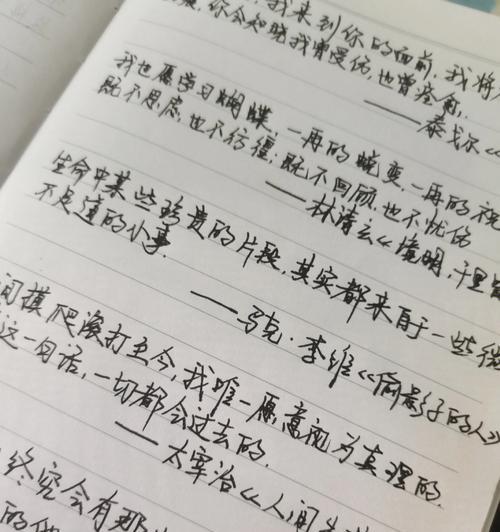 我来到你的面前,我将
你会知晓我曾受伤,也曾痊愈.
——泰戈尔《
我也愿学习蝴蝶,一再的蜕变,一再的祝
既不思虑,也不彷徨;既不回顾,也不忧伤
——林清玄《境明,千里皆
生命中某些珍贵的片段,其实都来自于一些微
不足道的小事.
——马克·李维《偷影子的人》
间摸爬滚打至今,我唯一愿意视为真理的.
这一句话,一切都会过去的.
——太宰治《人间失
终究会有那
的